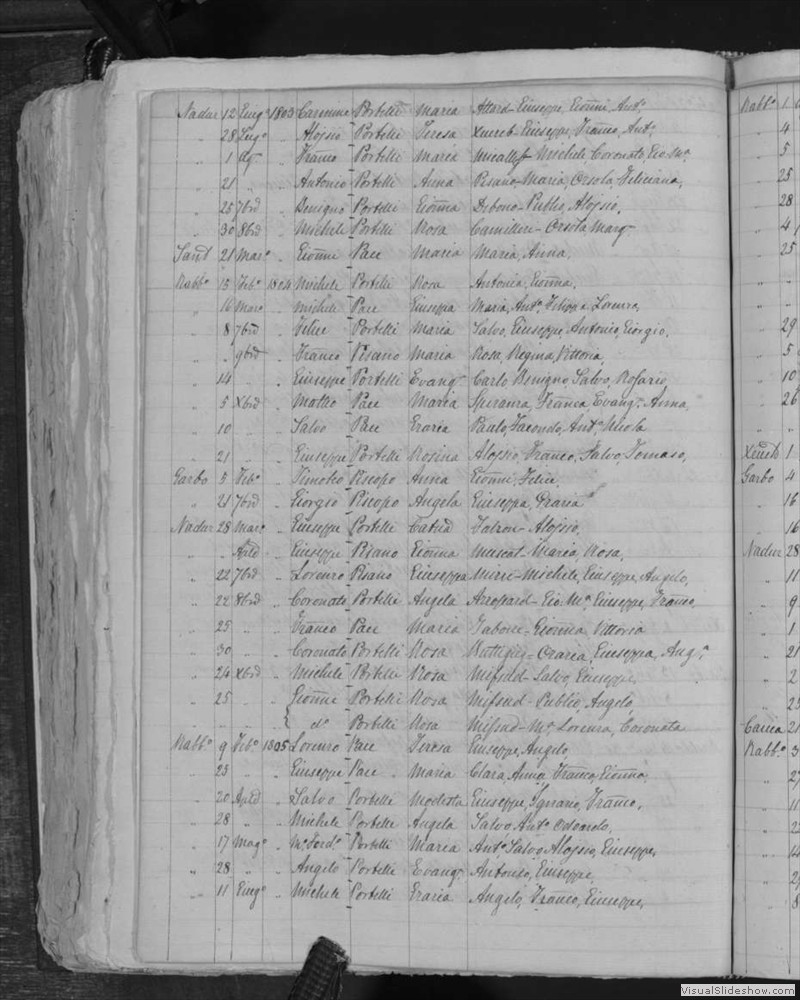 Nadur 12 Giug.o 1803 Carmine Portelli Maria Attard - Giuseppe, Giõnni, Ant.o
" 28 Lug.o " Aloysio Portelli Teresa Xuereb - Giuseppe, Franco, Ant.o
" 1 Ag " Franco Portelli Maria Micallef - Michele, Coronato, Gio M.a
" 21 " " Antonio Portelli Anna Pisano - Maria, Orsola, Feliciana,
" 25 7brẽ " Benigno Portelli Giõnna Debono - Publio, Aloysio,
" 30 8brẽ " Michele Portelli Rosa Camilleri - Orsola Marg
Sanñ 21 Mar.o " Giõnni Pace Maria Maria, Anna,
Rabb.o 15 Feb.o 1804 Michele Portelli Rosa Antonia, Giõnna,
" 16 Mar.o " Michele Pace Giuseppa Maria, Ant.a, Filippa, Lorenzo,
" 8 7brẽ " Felice Portelli Maria Salvo, Giuseppe, Antonio, Giorgio,
" " 9brẽ " Franco Pisano Maria Rosa, Regina, Vittoria,
" 14 " " Giuseppe Portelli Evang Carlo, Benigno, Salvo, Rosario,
" 5 Xbrẽ " Matteo Pace Maria Speranza, Franca, Evang.a Anna,
" 10 " " Salvo Pace Grazia Paolo, Facondo, Ant.o Nicola
" 21 " " Giuseppe Portelli Rosina Aloysio, Franco, Salvo, Tomaso,
Garbo 5 Feb.o " Timoteo Piscopo Anna Giõnni, Felice,
" 21 7brẽ " Giorgio Piscopo Angela Giuseppa, Grazia
Nadur 28 Mar.o " Giuseppe Portelli Catña Falzon - Aloysio,
" " Aplẽ " Giuseppe Pisano Giõnna Muscat - Maria, Rosa,
" 22 7brẽ " Lorenzo Pisano Giuseppa Mizzi - Michele, Giuseppe, Angelo,
" 22 8brẽ " Coronato Portelli Angela Azzopard - Gio: M.a, Giuseppe, Franco,
" 25 " " Franco Pace Maria Tabone - Giõnna, Vittoria
" 30 " " Coronato Portelli Rosa Buttigieg - Grazia, Giuseppa, Ang.a
" 24 Xbrẽ " Michele Portelli Rosa Mifsud - Salvo, Giuseppe,
" 25 " " Giõnne Portelli Rosa Mifsud - Publio, Angelo
" " " { d.o Portelli Rosa Mifsud - M.a Lorenza, Coronata
Rabb.o 9 Feb.o 1805 Lorenzo Pace Teresa Giuseppe, Angelo,
" 23 " " Giuseppe Pace Maria Clara, Anna, Franco, Giõnna,
" 20 Aplẽ " Salvo Portelli Modesta Giuseppe, Ignazio, Franco,
" 28 " " Michele Portelli Angela Salvo Ant.o
" 17 Mag.o " M: Ferd.o Portelli Maria Ant.o Salvo, Aloysio, Giuseppe,
" 28 " " Angelo Portelli Evang Antonio, Giuseppe,
" 11 Giug.o " Michele Portelli Grazia Angelo, Franco, Giuseppe,
Rabb.o 1
" 4
" 5
" 25
" 28
" 4
" 25
" 29
" 5
" 10
" 26
Xeuch 1
Garbo 4
" 16
" 16
Nadur 28
" 11
" 9
" 1
" 21
" 2
Caccia 21
Rabb.o 3
VisualSlideshow.com